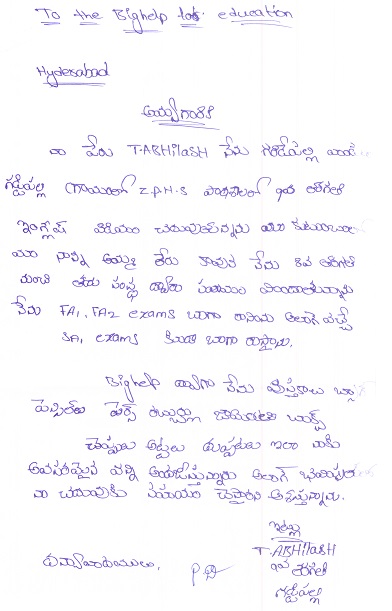 To the Bighelp for education
Hyderabad
అయ్యగారికి
నా పేరు T.ABHILASH నేను గరిడేపల్లి మండ
గడ్డిపల్లి గ్రామంలో Z.P.H.S పాఠశాలలో 9వ తరగతి
ఇంగ్లీష్ మీడియం చదువుతున్నాను మా కుటుంబం
మా నాన్న అమ్మ లేరు కావున నేను 8వ తరగతి
నుంచి ఈ సంస్థ ద్వారా సహాయం పొందుతున్నాను
నేను FA1, FA2 exams బాగా రాసాను అలాగే వచ్చే
SA1 exams కూడా బాగా రాస్తాను.
Bighelp ద్వారా నేను పుస్తకాలు బ్యా
పెన్సిల్లు పెన్స్ జామెట్రీ బాక్స్
చెప్పులు అట్టలు దుప్పటులు ఇలా నాకు
అవసరమైనవన్నీ అందజేస్తున్నారు అలాగే భవిష్యత్
నా చదువుకు సహాయం చేస్తారని ఆశిస్తున్నాను.
ఇట్లు
T.ABHILASH
ధన్యవాదములు.
9వ తరగతి
గడ్డిపల్లి